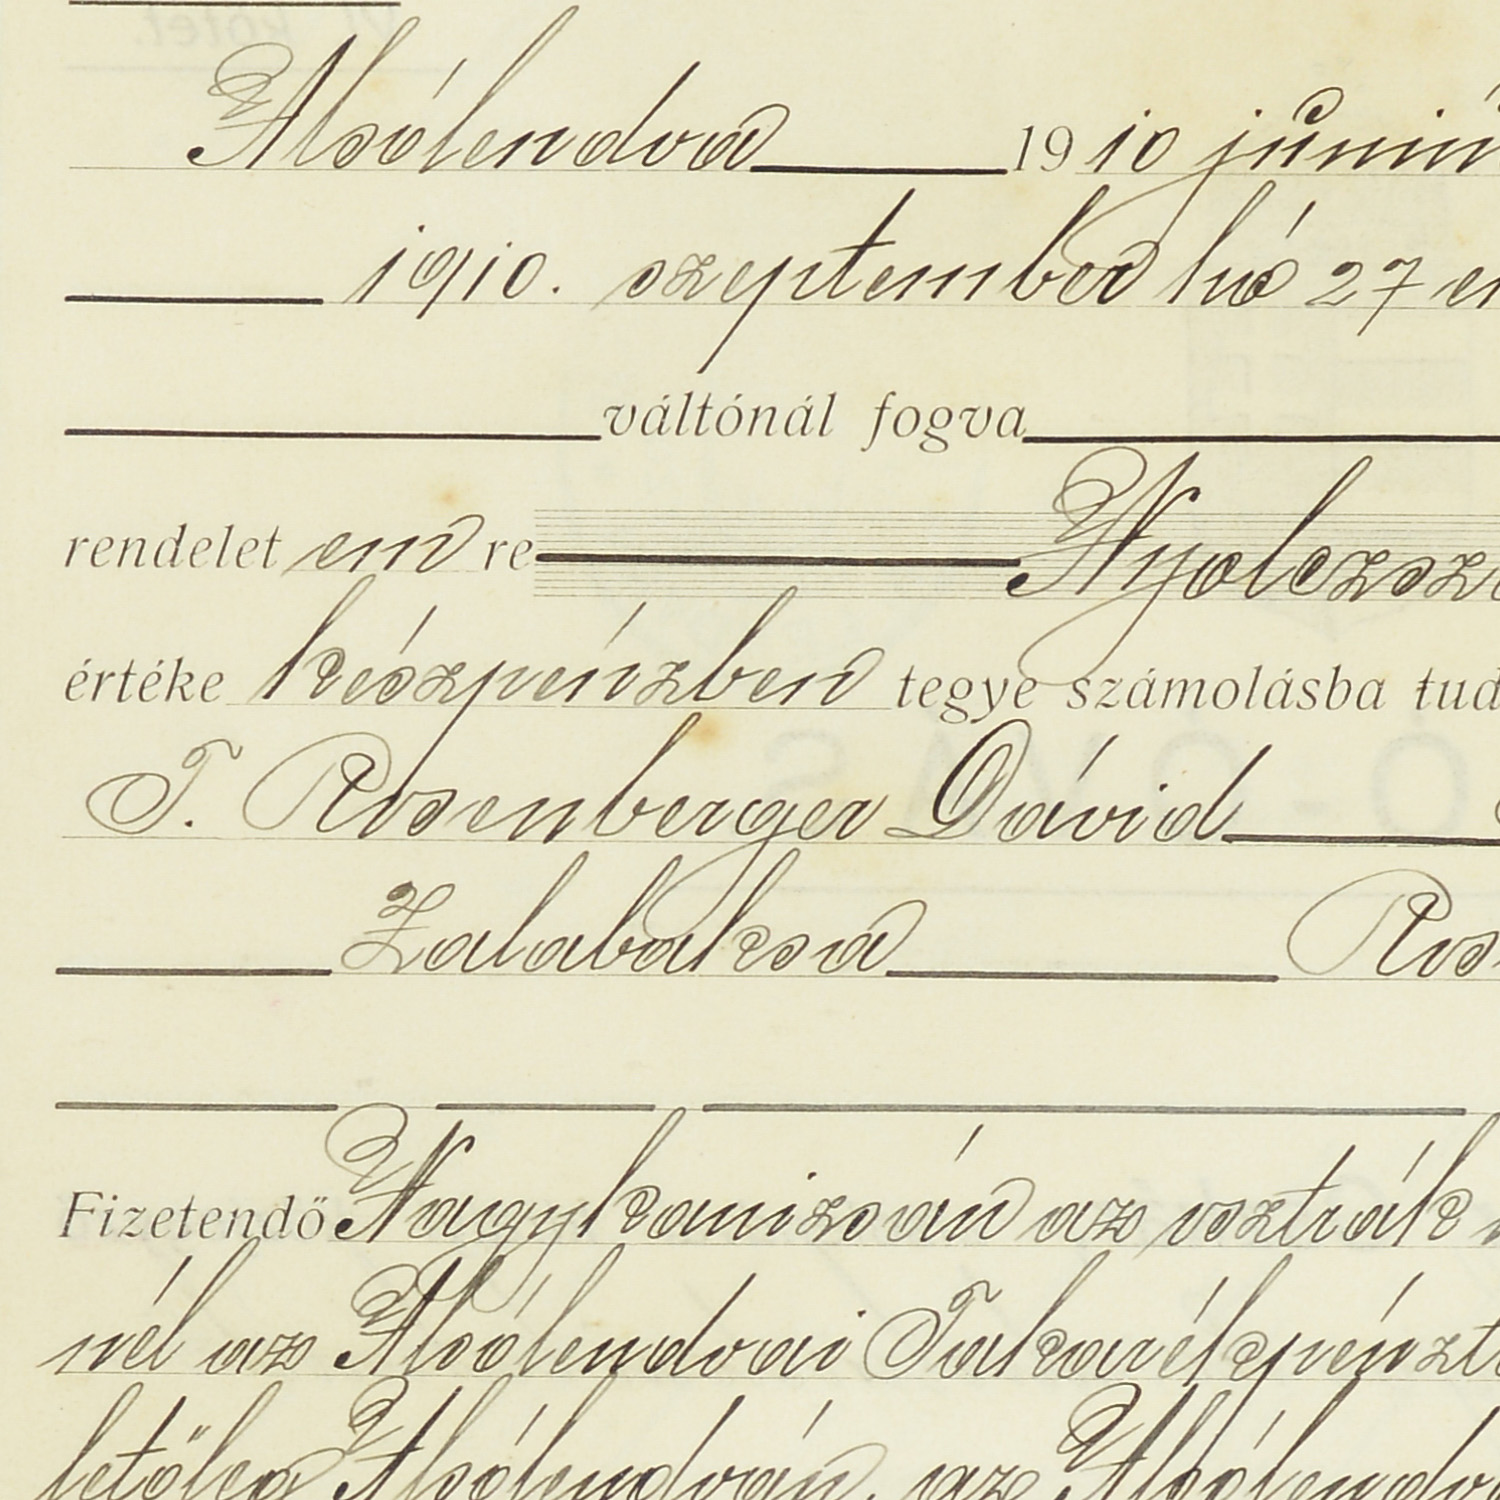 Alsólendva 1910 júni
1910. szeptember hó 27 en
váltónál fogva
rendelet en re Nyolczsz
értéke készpénzben tegye számolásba tud
T. Rosenberger Dávid
Zalabaksa Ros
Fizetendő Nagykanizsán az osztrák
nél az Alsólendvai Takarékpénzt
letőleg Alsólendván, az Alsólendv